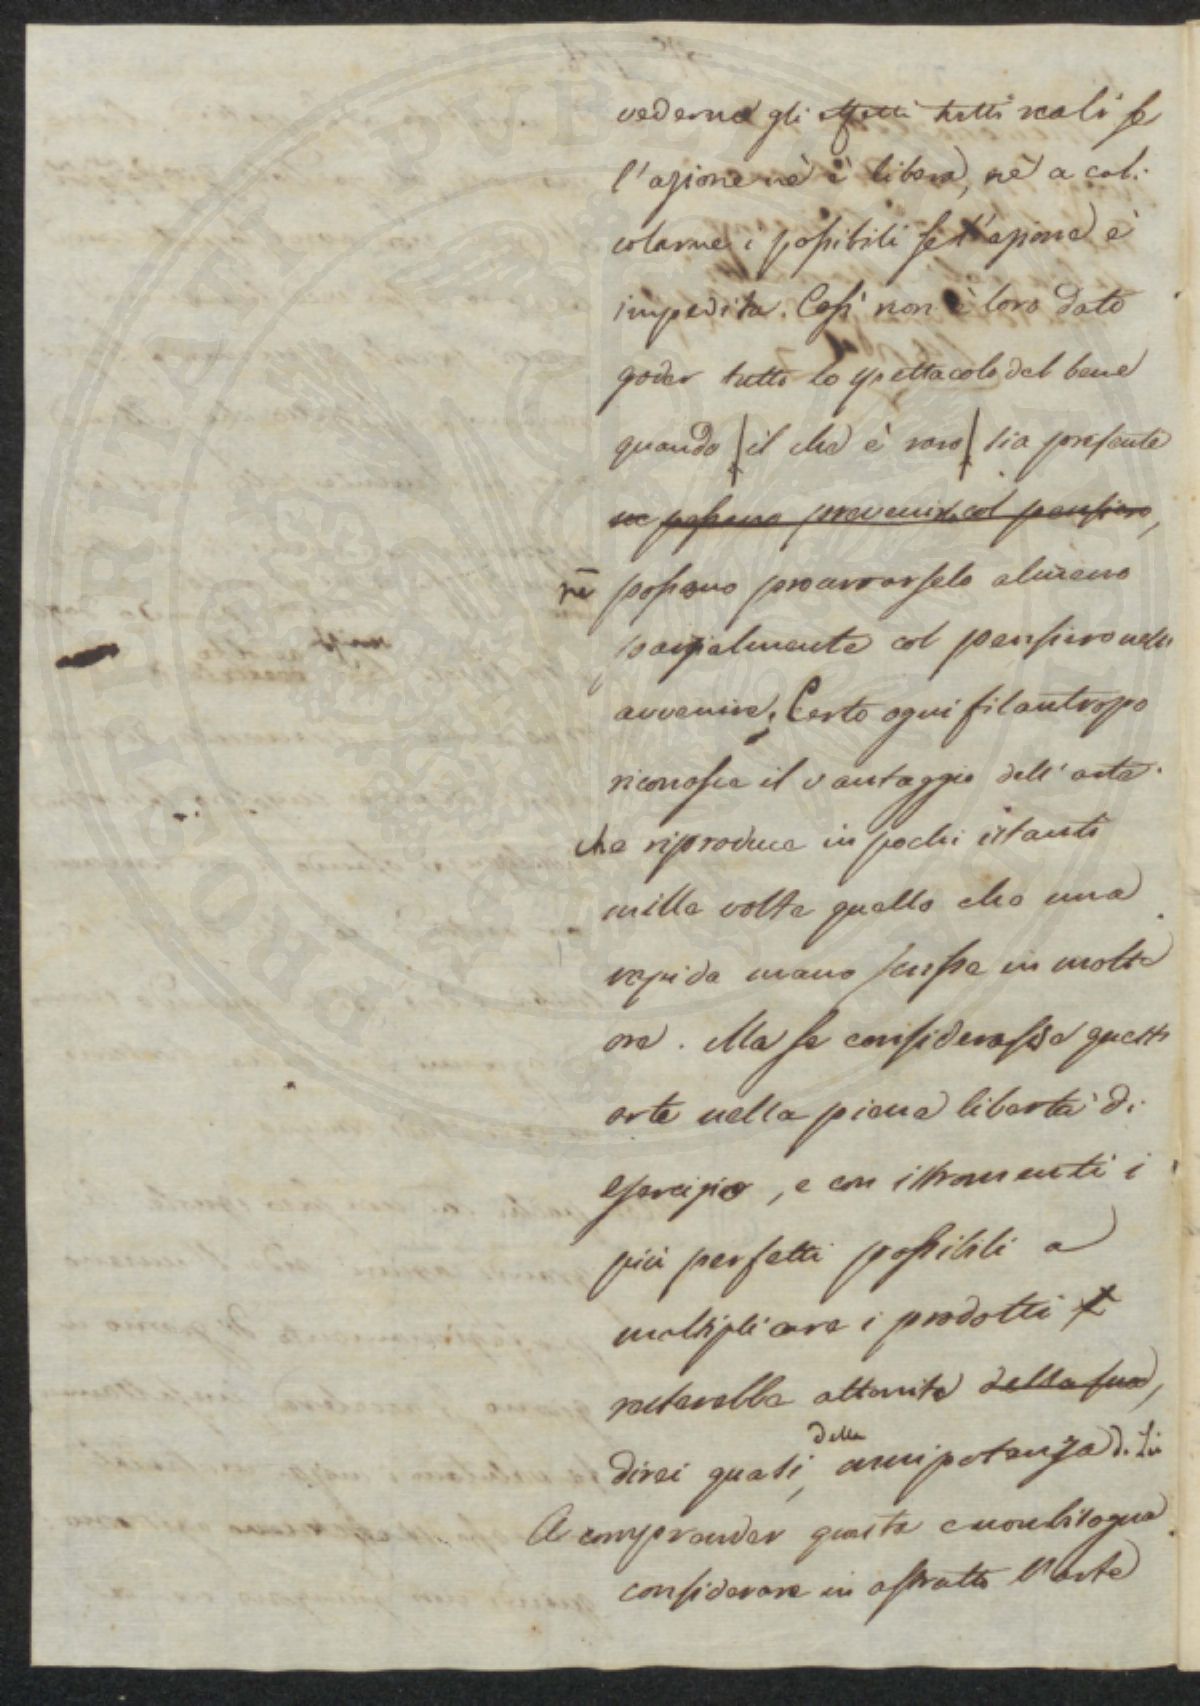 vederne gli effetti tutti reali se
l'azione nè è libera, nè a cal:
colarne i possibili se l'azione è
impedita. Così non è loro dato
goder tutto lo spettacolo del bene
quando il che è raro sia presente
ne possono prevenirlo col pensiero,
nè possono procurarselo almeno
parzialmente col pensiero nell'
avvenire. Certo ogni filantropo
riconosce il vantaggio dell'arte
che riproduce in pochi istanti
mille volte quello che una
rapida mano scrisse in molte
ore. Ma se considerasse quest'
arte nella piena libertà di
esercizio, e con istromenti i
più perfetti possibili a
moltiplicare i prodotti
resterebbe attonito della sua,
direi quasi, della onnipotenza di Lei
A comprender questa
considerare in astratto l'arte
PVBLICA
POSTERITATI